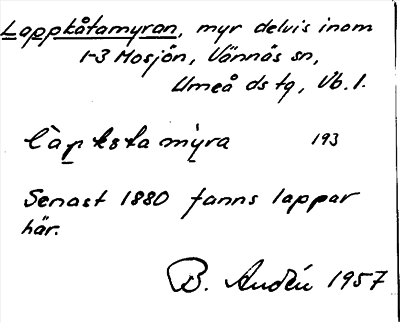 Lappkåtamyran, myr delvis inom
1-3 Mosjön, Vännäs sn,
Umeå ds tg, Vb. l.
193
Senast 1880 fanns lappar
här.
B. Audén 1957